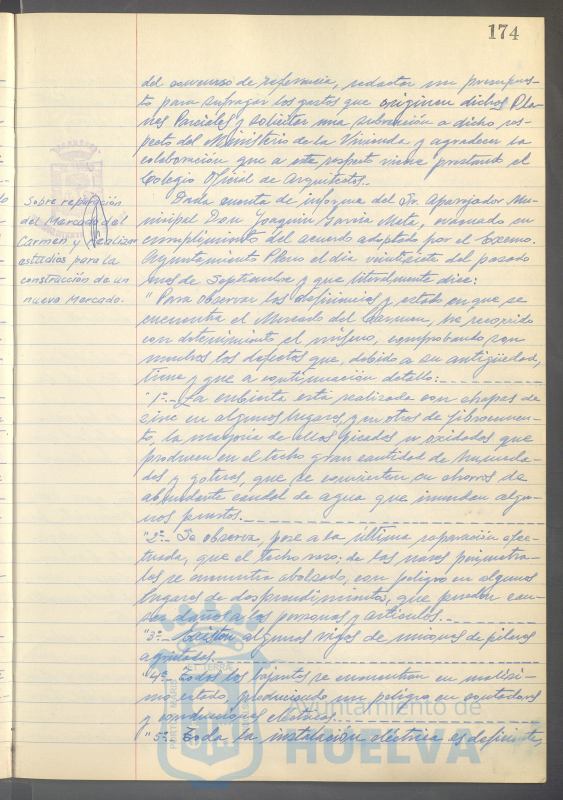 174
del concurso de referencia, redactar un presupues-
to para sufragar los gastos que originen dichos Pla-
nes Parciales y solicitar una subvención a dicho res-
pecto del Ministerio de la Vivienda y agradecer la
colaboración que a este respecto viene prestando el
Colegio Oficial de Arquitectos.
Sobre reparación
del Mercado del
Carmen y realizar
estudios para la
construcción de un
nuevo Mercado.
Dada cuenta de informe del Sr. Aparejador Mu-
nicipal Don Joaquín García Mata, evacuado en
cumplimiento del acuerdo adoptado por el Excmo.
Ayuntamiento Pleno el día veintisiete del pasado
mes de Septiembre y que literalmente dice:
"Para observar las deficiencias y estado en que se
encuentra el Mercado del Carmen, he recorrido
con detenimiento el mismo, comprobando son
muchos los defectos que, debido a su antigüedad,
tiene y que a continuación detallo:
"1º.- La cubierta está realizada con chapas de
zinc en algunos lugares, y en otros de fibrocemen-
to, la mayoría de ellos picados u oxidados que
producen en el techo gran cantidad de humeda-
des y goteras, que se convierten en chorros de
abundante caudal de agua que inundan algu-
nos puntos.
"2º.- Se observa, pese a la última reparación efec-
tuada, que el techo raso de las naves perimetra-
les se encuentra abolsado, con peligro en algunos
lugares de desprendimientos, que pueden cau-
sar daños a las personas y artículos.
"3º.- Existen algunos vigas de de pilares
agrietados.
"4º.- Todos los bajantes se encuentran en malísi-
mo estado, produciendo un peligro en contadores
y conducciones eléctricas.
"5º.- Toda la instalación eléctrica es deficiente,
Ayuntamiento de
HUELVA